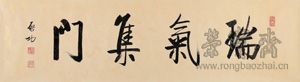 瑞氣集門
啟功
榮寶齋
www.rongbaozhai.cn